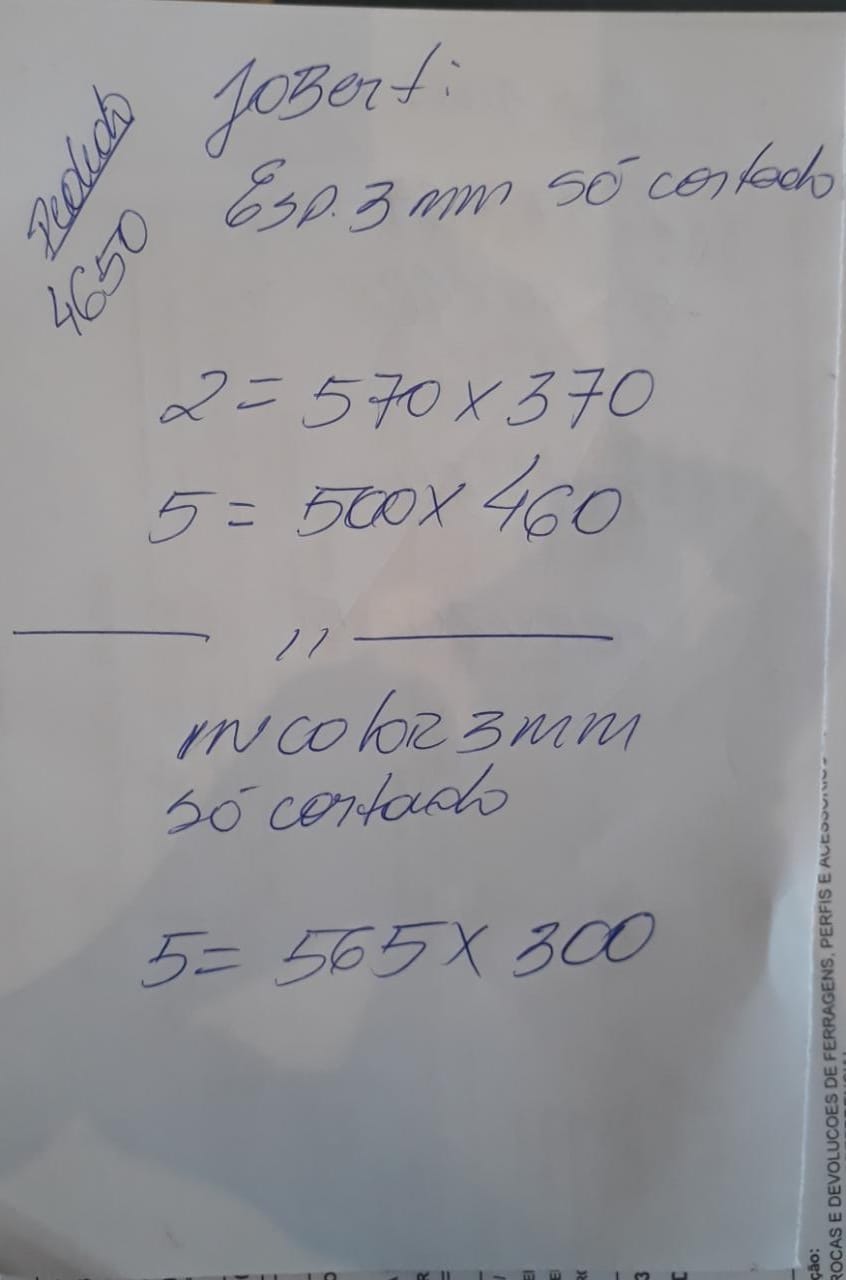 Jobert:
Pedido
4650
Esp. 3 mm só cortado
2 = 570 x 370
5 = 500 x 460
——— 〃 ———
incolor 3 mm
só cortado
5 = 565 x 300
ROCAS E DEVOLUCOES DE FERRAGENS, PERFIS E ACESSÓRIOS
ção: